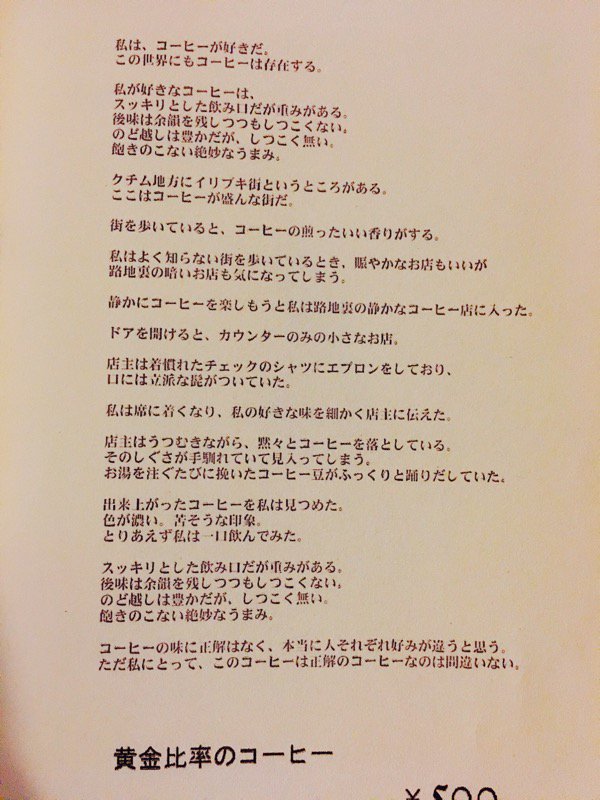 私は、コーヒーが好きだ。
この世界にもコーヒーは存在する。
私が好きなコーヒーは、
スッキリとした飲み口だが重みがある。
後味は余韻を残しつつもしつこくない。
のど越しは豊かだが、しつこく無い。
飽きのこない絶妙なうまみ。
クチム地方にイリブキ街というところがある。
ここはコーヒーが盛んな街だ。
街を歩いていると、コーヒーの煎ったいい香りがする。
私はよく知らない街を歩いているとき，賑やかなお店もいいが
路地裏の暗いお店も気になってしまう。
静かにコーヒーを楽しもうと私は路地裏の静かなコーヒー店に入った。
ドアを開けると、カウンターのみの小さなお店。
店主は着慣れたチェックのシャツにエプロンをしており、
口には立派な髭がついていた。
私は席に着くなり、私の好きな味を細かく店主に伝えた。
店主はうつむきながら、黙々とコーヒーを落としている。
そのしぐさが手馴れていて見入ってしまう。
お湯を注ぐたびに挽いたコーヒー豆がふっくりと踊りだしていた。
出来上がったコーヒーを私は見つめた。
色が濃い。苦そうな印象。
とりあえず私は一口飲んでみた。
スッキリとした飲み口だが重みがある。
後味は余韻を残しつつもしつこくない。
のど越しは豊かだが、しつこく無い。
飽きのこない絶妙なうまみ。
コーヒーの味に正解はなく、本当に人それぞれ好みが違うと思う。
ただ私にとって、このコーヒーは正解のコーヒーなのは間違いない。
黄金比率のコーヒー
¥500